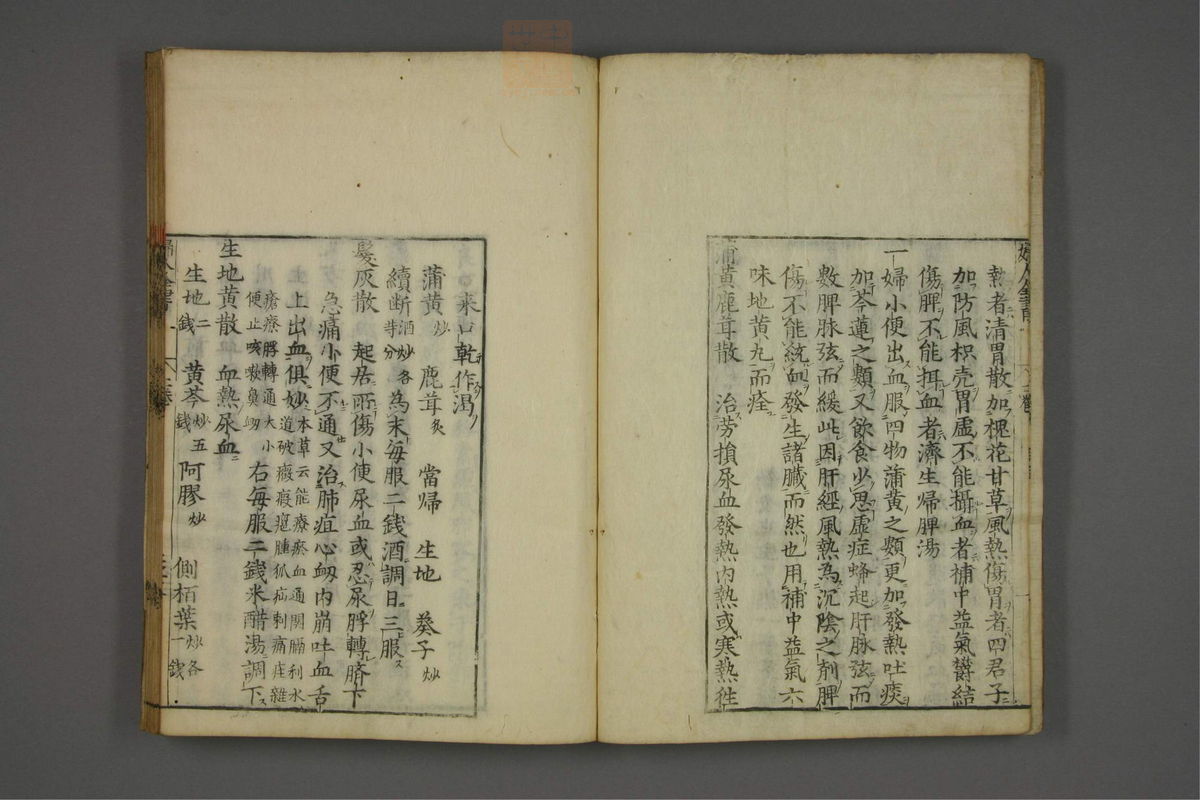 熱者清胃散加槐花甘草風熱傷胃者四君子
加防風枳壳胃虚不能攝血者補中益氣欝結
傷脾不能摂血者濟生帰脾湯
一婦小便出血服四物蒲黄之類更加發熱吐痰
加芩蓮之類又飲食少思虚症蜂起肝脉弦而
數脾脉弦而緩此因肝經風熱為沉陰之剤脾
傷不能統血發生諸臓而然也用補中益氣六
味地黄丸而痊
蒲黄鹿茸散 治労損尿血發熱内熱或寒熱徃
来口乾作渇
蒲黄炒 鹿茸炙 當帰 生地 葵子炒
續断酒炒各等分 為末毎服二銭酒調日三服
髪灰散 起居所傷小便尿血或忍尿脬轉臍下
急痛小便不通又治肺疽心衂内崩吐血舌
上出血俱妙本草云能療瘀血通関膈利水道破癥瘕癰腫狐疝刺痛疰雜瘡療脬轉通大小便止咳嗽鼻衂
右毎服二銭米醋湯調下
生地黄散 血熱尿血
生地二銭 黄芩炒五銭 阿膠炒 側栢葉炒各一銭